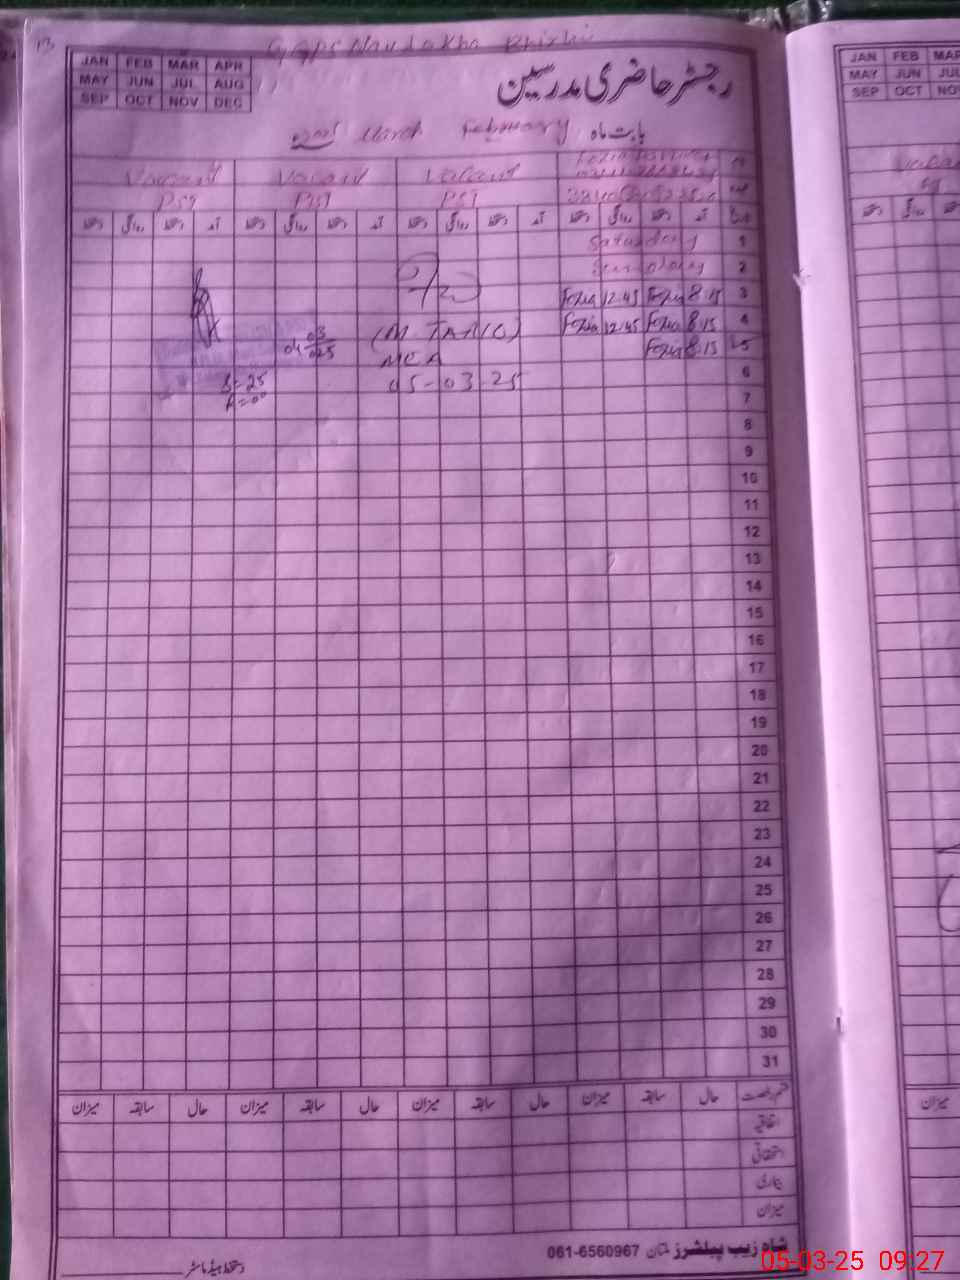 13 GGPS
JAN FEB MAR APR
MAY JUN JUL AUG
SEP OCT NOV DEC
رجسٹر حاضری مدرسین
بابت ماہ February March 2025
Vacant Vacant Vacant
PST PST PST
آمد دستخط روانگی دستخط آمد دستخط روانگی دستخط آمد دستخط روانگی دستخط آمد دستخط روانگی دستخط
Saturday 1
Sunday 2
Fozia 12:45 Fozia 8:15 3
Fozia 12:45 Fozia 8:15 4
Fozia 8:15 5
04 03 025
(M. TARIQ)
MEA
05-03-25
S=25
6
7
8
9
10
11
12
13
14
15
16
17
18
19
20
21
22
23
24
25
26
27
28
29
30
31
قسم رخصت حال سابقہ میزان حال سابقہ میزان حال سابقہ میزان حال سابقہ میزان
اتفاقیہ
استحقاقی
بیماری
میزان
شاہ زیب پبلشرز ملتان 061-6560967
دستخط ہیڈ ماسٹر
JAN FEB MAR
MAY JUN JUL
SEP OCT NOV
میزان
05-03-25 09:27